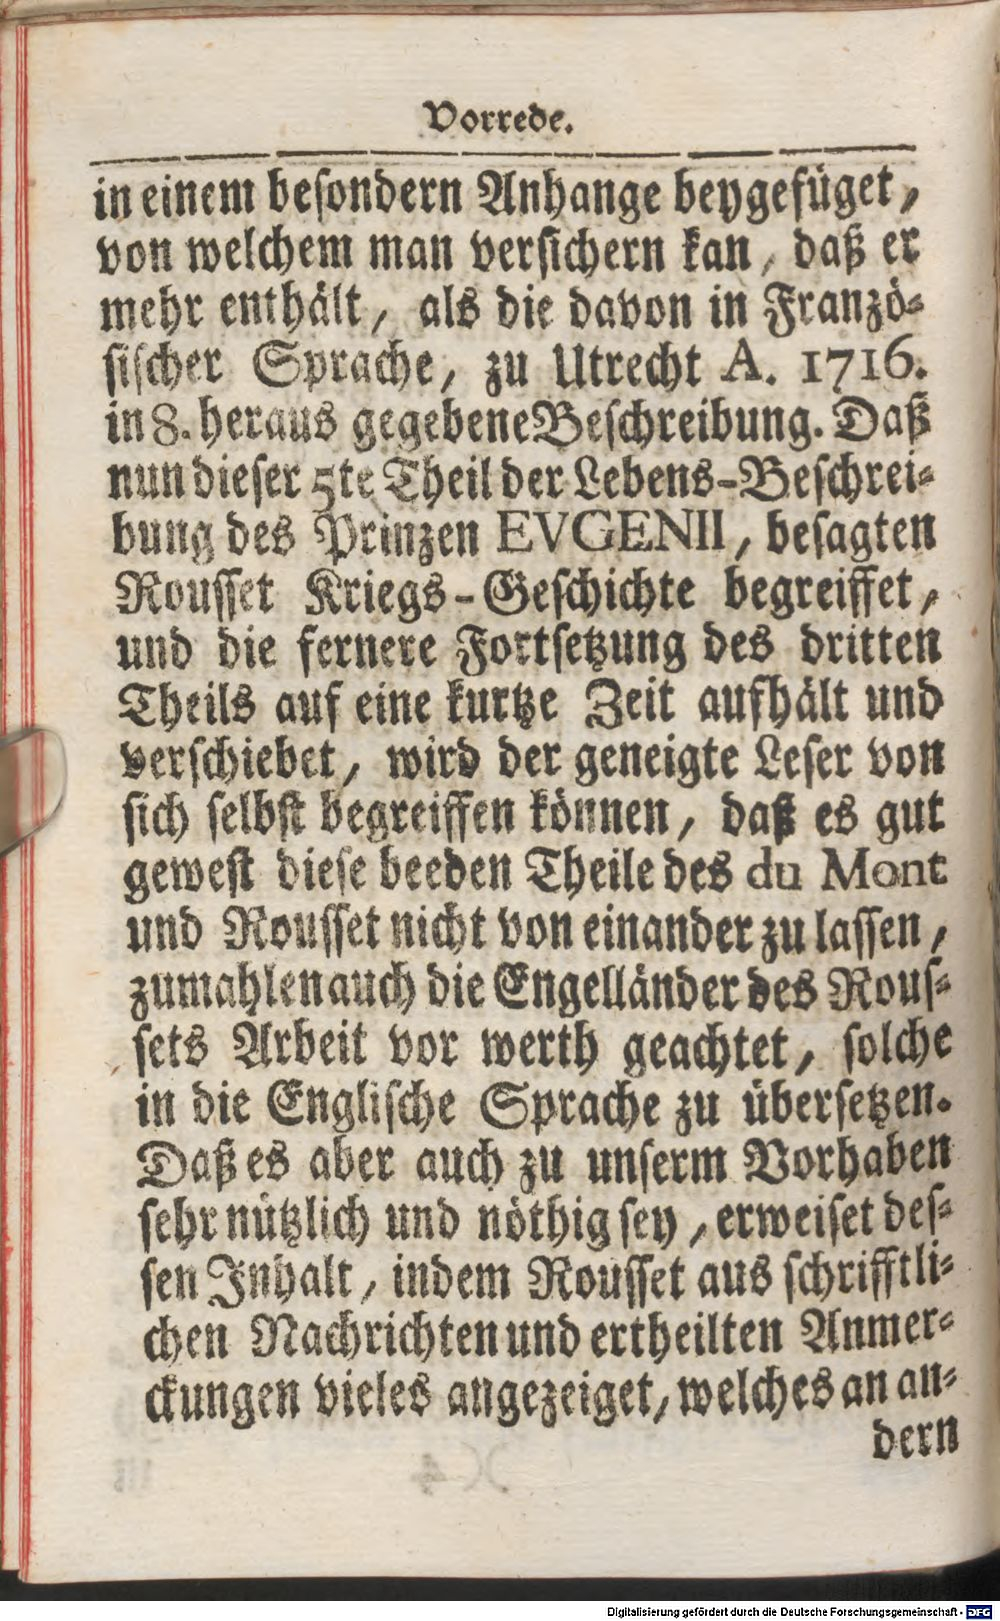 Vorrede.
in einem besondern Anhange beygefüget,
von welchem man versichern kan, daß er
mehr enthält, als die davon in Franzö-
sischer Sprache, zu Utrecht A. 1716.
in 8. heraus gegebene Beschreibung. Daß
nun dieser 5te Theil der Lebens-Beschrei-
bung des Prinzen EVGENII, besagten
Rousset Kriegs-Geschichte begreiffet,
und die fernere Fortsetzung des dritten
Theils auf eine kurtze Zeit aufhält und
verschiebet, wird der geneigte Leser von
sich selbst begreiffen können, daß es gut
gewest diese beeden Theile des du Mont
und Rousset nicht von einander zu lassen,
zumahlen auch die Engelländer des Rous-
sets Arbeit vor werth geachtet, solche
in die Englische Sprache zu übersetzen.
Daß es aber auch zu unserm Vorhaben
sehr nützlich und nöthig sey, erweiset des-
sen Inhalt, indem Rousset aus schrifftli-
chen Nachrichten und ertheilten Anmer-
ckungen vieles angezeiget, welches an an-
dern
Digitalisierung gefördert durch die Deutsche Forschungsgemeinschaft - DFG